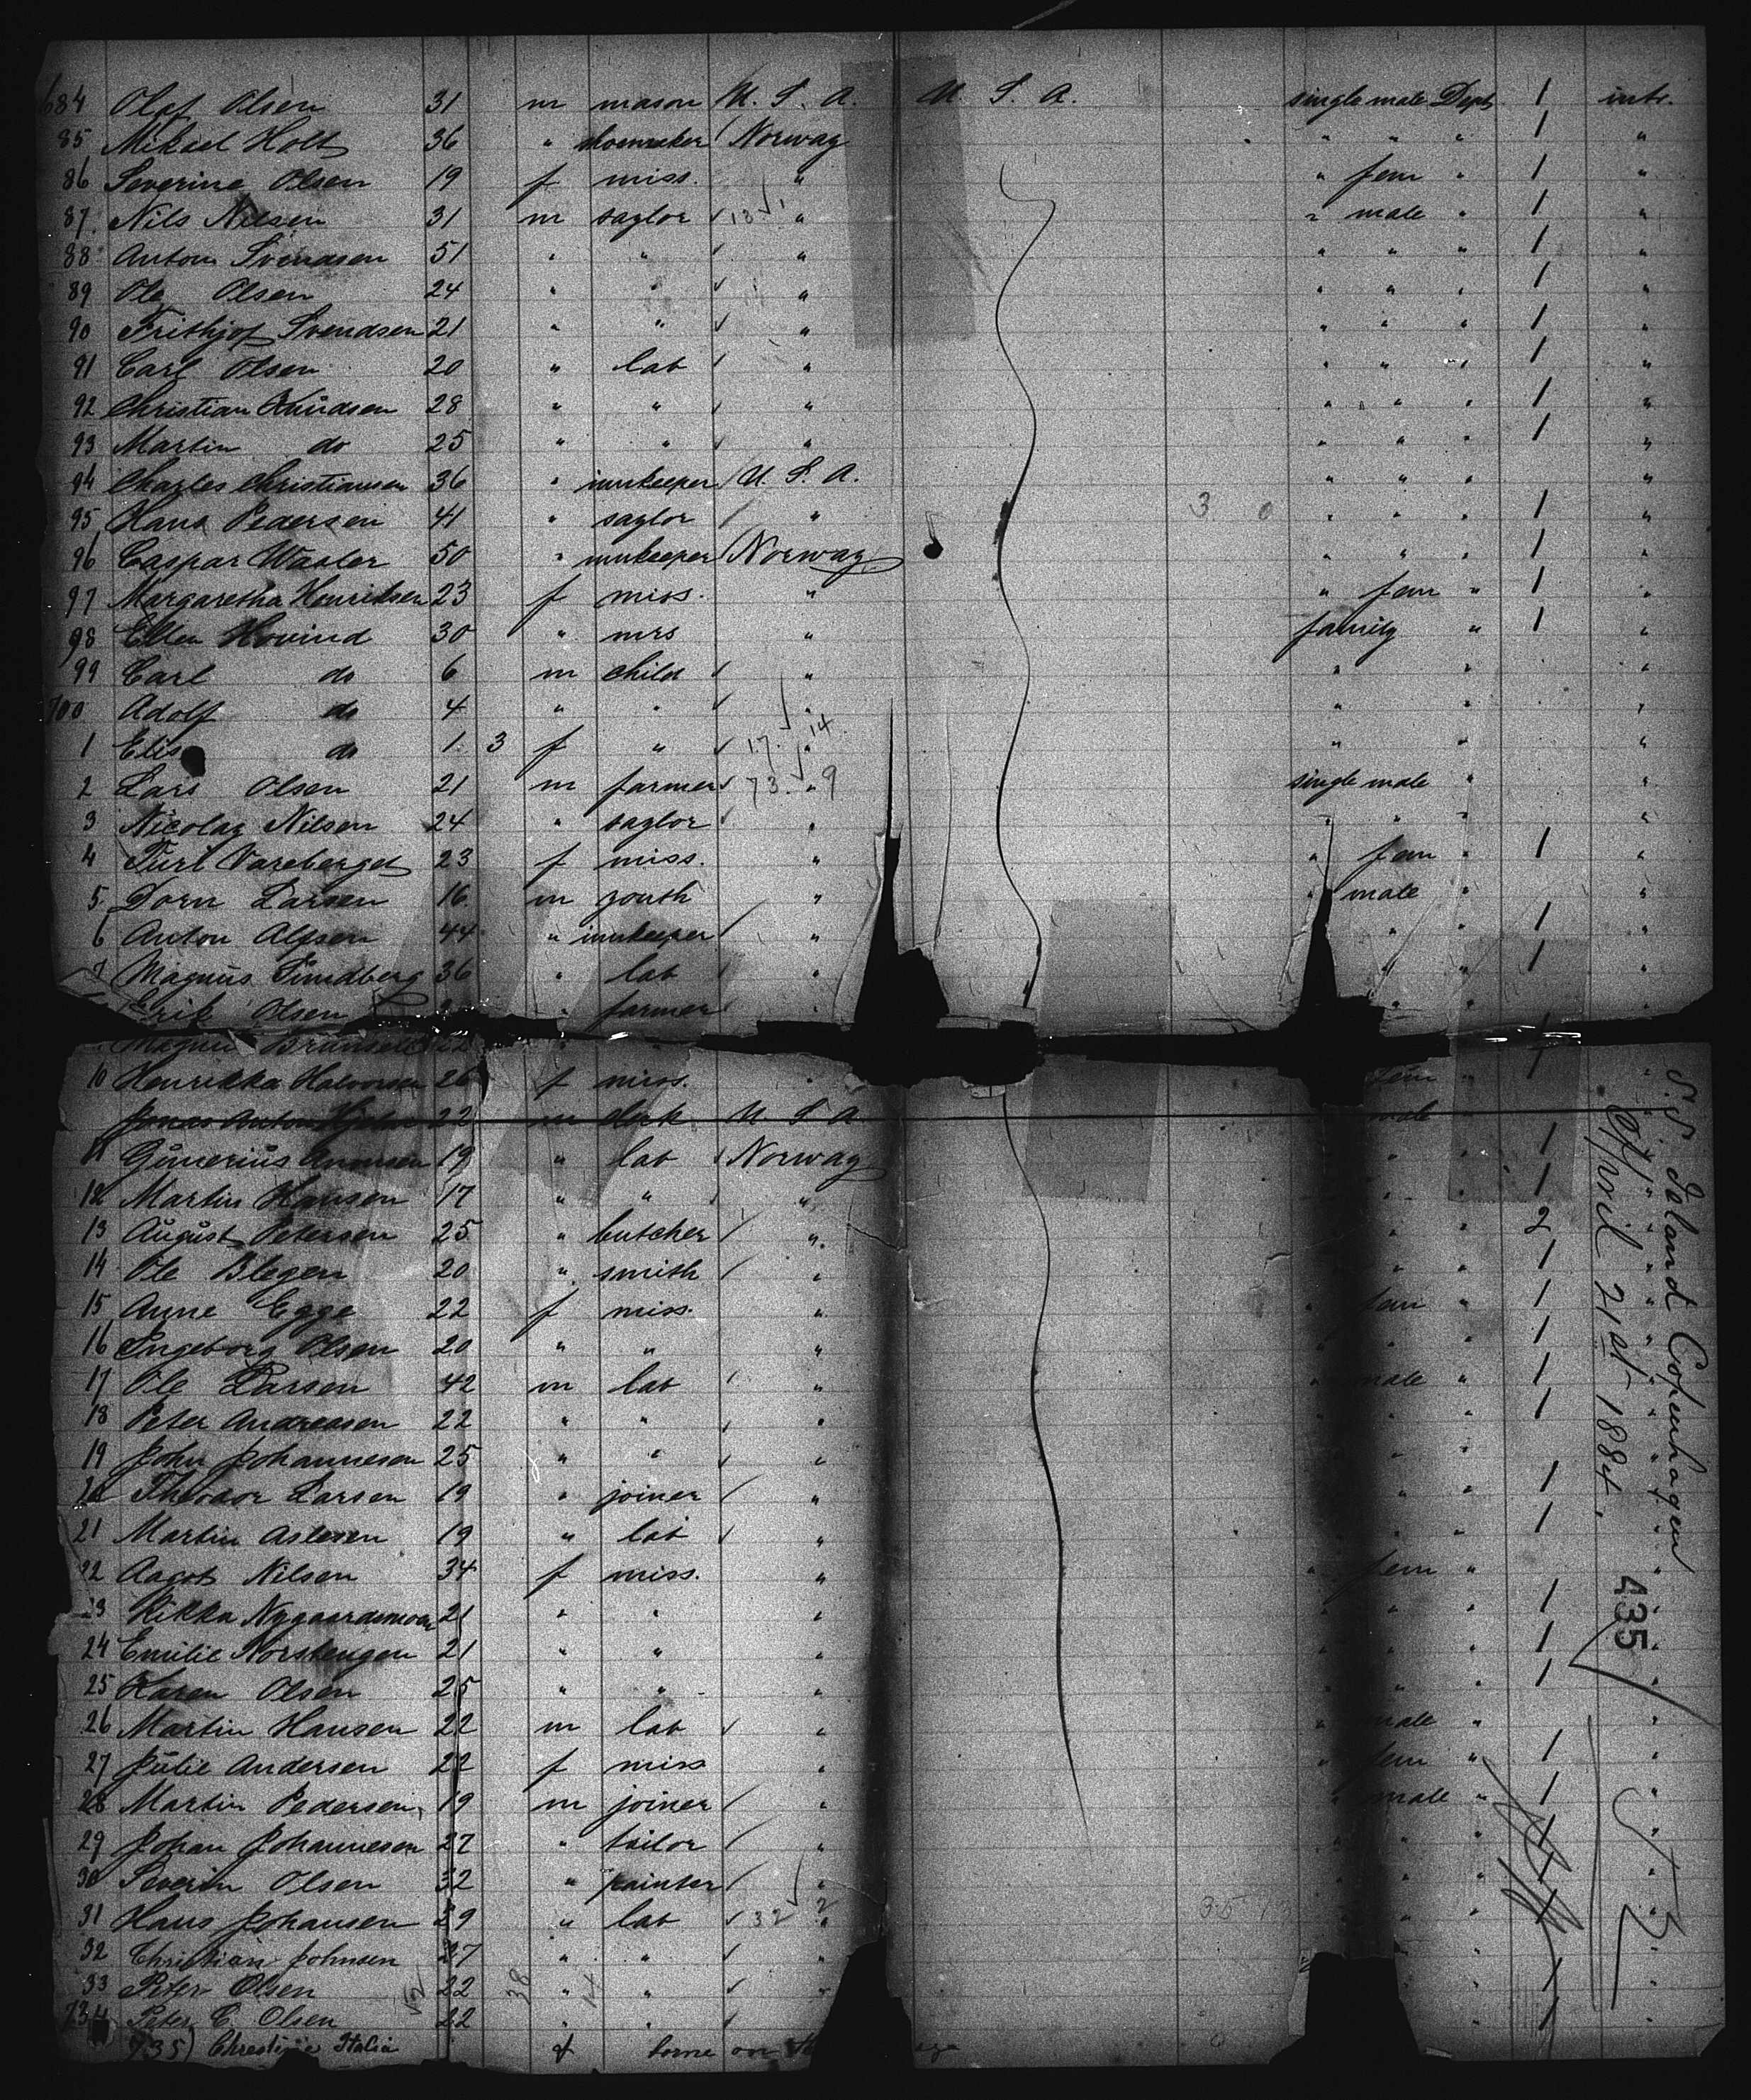 684 Olaf Olsen 31 m mason U. S. A. U. S. A. single male Dept. 1 intr.
85 Mikael Holt 36 " shoemaker Norway " " " 1 "
86 Severine Olsen 19 f miss. " " fem " 1 "
87 Nils Nilsen 31 m saylor 13 1 " " male " 1 "
88 Anton Svendsen 51 " " " " " " 1 "
89 Ole Olsen 24 " " " " " " 1 "
90 Frithjof Svendsen 21 " " " " " " 1 "
91 Carl Olsen 20 " lab " " " " 1 "
92 Christian Knudsen 28 " " " " " " 1 "
93 Martin do 25 " " " " " " 1 "
94 Charles Christiansen 36 " innkeeper U. S. A. " " " "
95 Hans Pedersen 41 " saylor " 3 0 " " " 1 "
96 Caspar Waaler 50 " innkeeper Norway " " " 1 "
97 Margaretha Henriksen 23 f miss. " " fem " 1 "
98 Ellen Hovind 30 " mrs " family " 1 "
99 Carl do 6 m child " " " "
700 Adolf do 4 " " " " " "
1 Elis do 1 3 f " 17 14 " " " "
2 Lars Olsen 21 m farmer 73 " 9 single male " "
3 Nicolay Nilsen 24 " saylor " " " " "
4 Turi Vareberget 23 f miss. " " fem " 1 "
5 Dorn Larsen 16 m youth " " male " "
6 Anton Alfsen 44 " innkeeper " " " 1 "
7 Magnus Sundberg 36 " lab " " " 1 "
Erik Olsen " farmer " " "
10 Henrikka Halvorsen 26 f miss. " fem " 1 "
Jonas Anton 22 m clerk U S A male
11 Gunerius 19 " lab Norway " " 1
12 Martin Hansen 17 " " " " " 1
13 August Petersen 25 " butcher " " " 2
14 Ole Blegen 20 " smith " " " 1
15 Anne Egge 22 f miss. " " fem " 1
16 Ingeborg Olsen 20 " " " " " " 1
17 Ole Larsen 42 m lab " " male " 1
18 Peter Andreasen 22 " " " " " " 1
19 John Johannesen 25 " " " " " "
20 Theodor Larsen 19 " joiner " " " 1
21 Martin Aslesen 19 " lab " " " 1
22 Aagot Nilsen 34 f miss. " " fem "
23 Rikka Nygaardsmoen 21 " " " " " " 1
24 Emilie Norstengen 21 " " " " " " 1
25 Karen Olsen 25 " " " " " 1
26 Martin Hansen 22 m lab " " male "
27 Julie Andersen 22 f miss " " fem " 1
28 Martin Pedersen 19 m joiner " " male " 1
29 Johan Johannesen 27 " tailor " " "
30 Severin Olsen 32 " painter " " "
31 Hans Johansen 29 " lab 32 2 " 35 " "
32 Christian Johnsen 27 " " " "
33 Peter Olsen 22 " " " " " 1
734 Peter C. Olsen 22 " " " " 1
735) Christine Italia f borne on
S. S. Island Copenhagen
April 21st 1884.
435